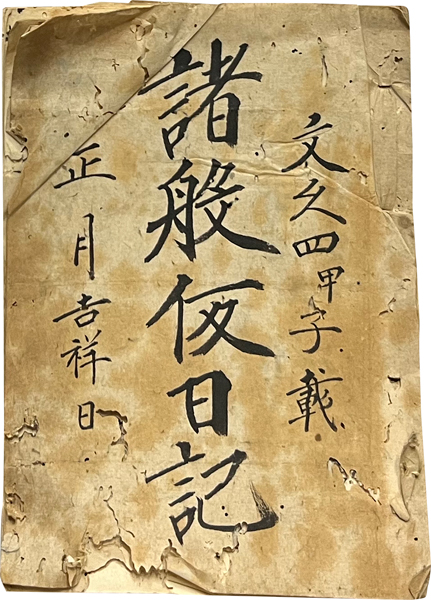 文久四甲子載
諸般仮日記
正月吉祥日